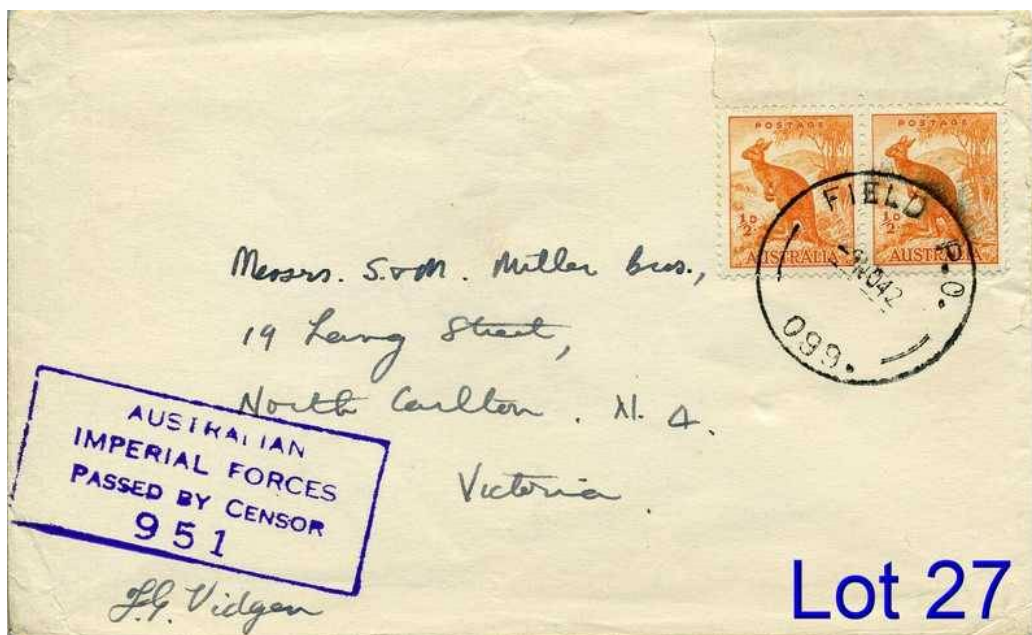 POSTAGE
½D
AUSTRALIA
POSTAGE
½D
AUSTRALIA
FIELD P.O.
NO42
099
Messrs. S. & M. Miller Bros.,
19 Lang Street,
North Carlton. N. 4.
Victoria
AUSTRALIAN
IMPERIAL FORCES
PASSED BY CENSOR
951
F.G. Vidgen
Lot 27